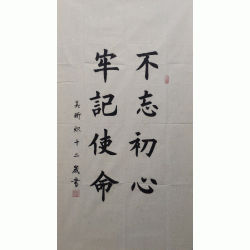 不忘初心
牢記使命
十二歲書